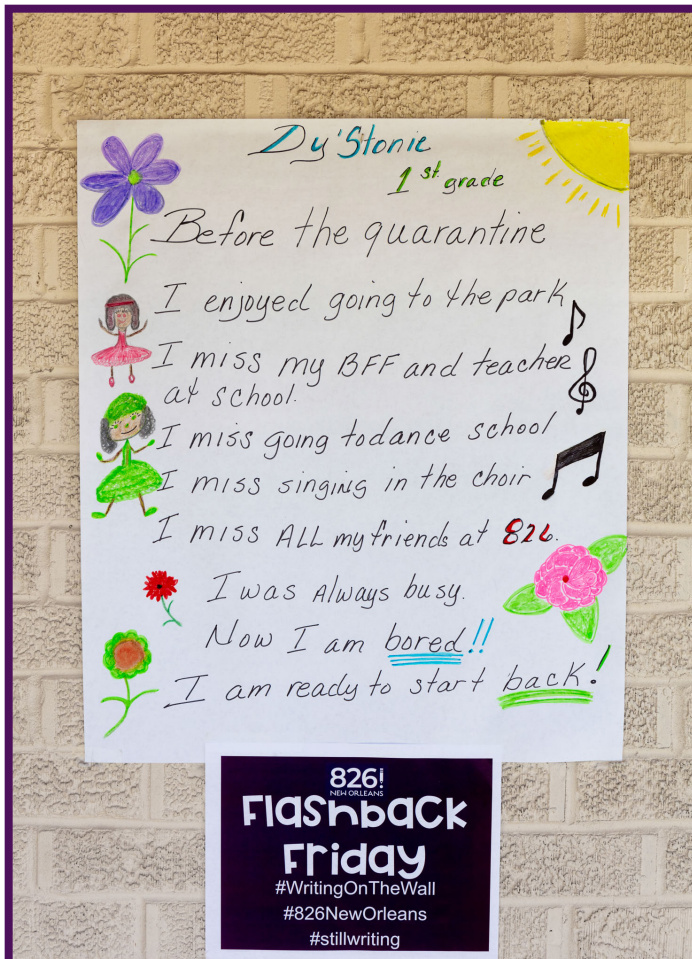 Dy'Stonie
1st grade
Before the quarantine
I enjoyed going to the park
I miss my BFF and teacher
at school.
I miss going to dance school
I miss singing in the choir
I miss ALL my friends at 826.
I was Always busy.
Now I am bored!!
I am ready to start back!
826!
NEW ORLEANS
Flashback
Friday
#WritingOnTheWall
#826NewOrleans
#stillwriting